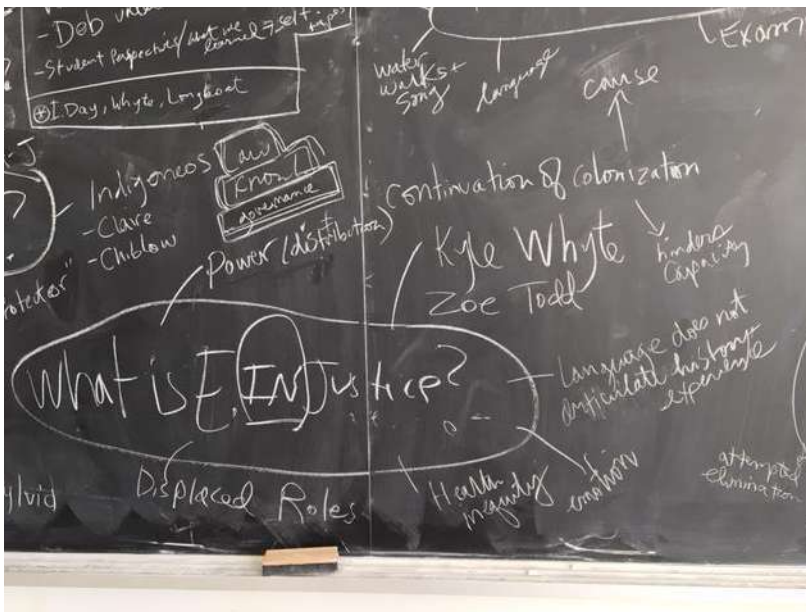 - Deb
- Student Perspectives/what we learned → self +
⊛ I. Day, Whyte, Longboat
Exam
water walks +
song
language
cause
- J
Indigeneos
- Clare
- Chiblow
Law
Know
governance
Continuation of Colonization
hinders
capacity
rotector"
Power (distribution)
Kyle Whyte
Zoe Todd
What is E. INJustice?
- Language does not
articulate history +
experience
Displaced Roles
Health
inequity
emotion
attempted
elimination
ylvid